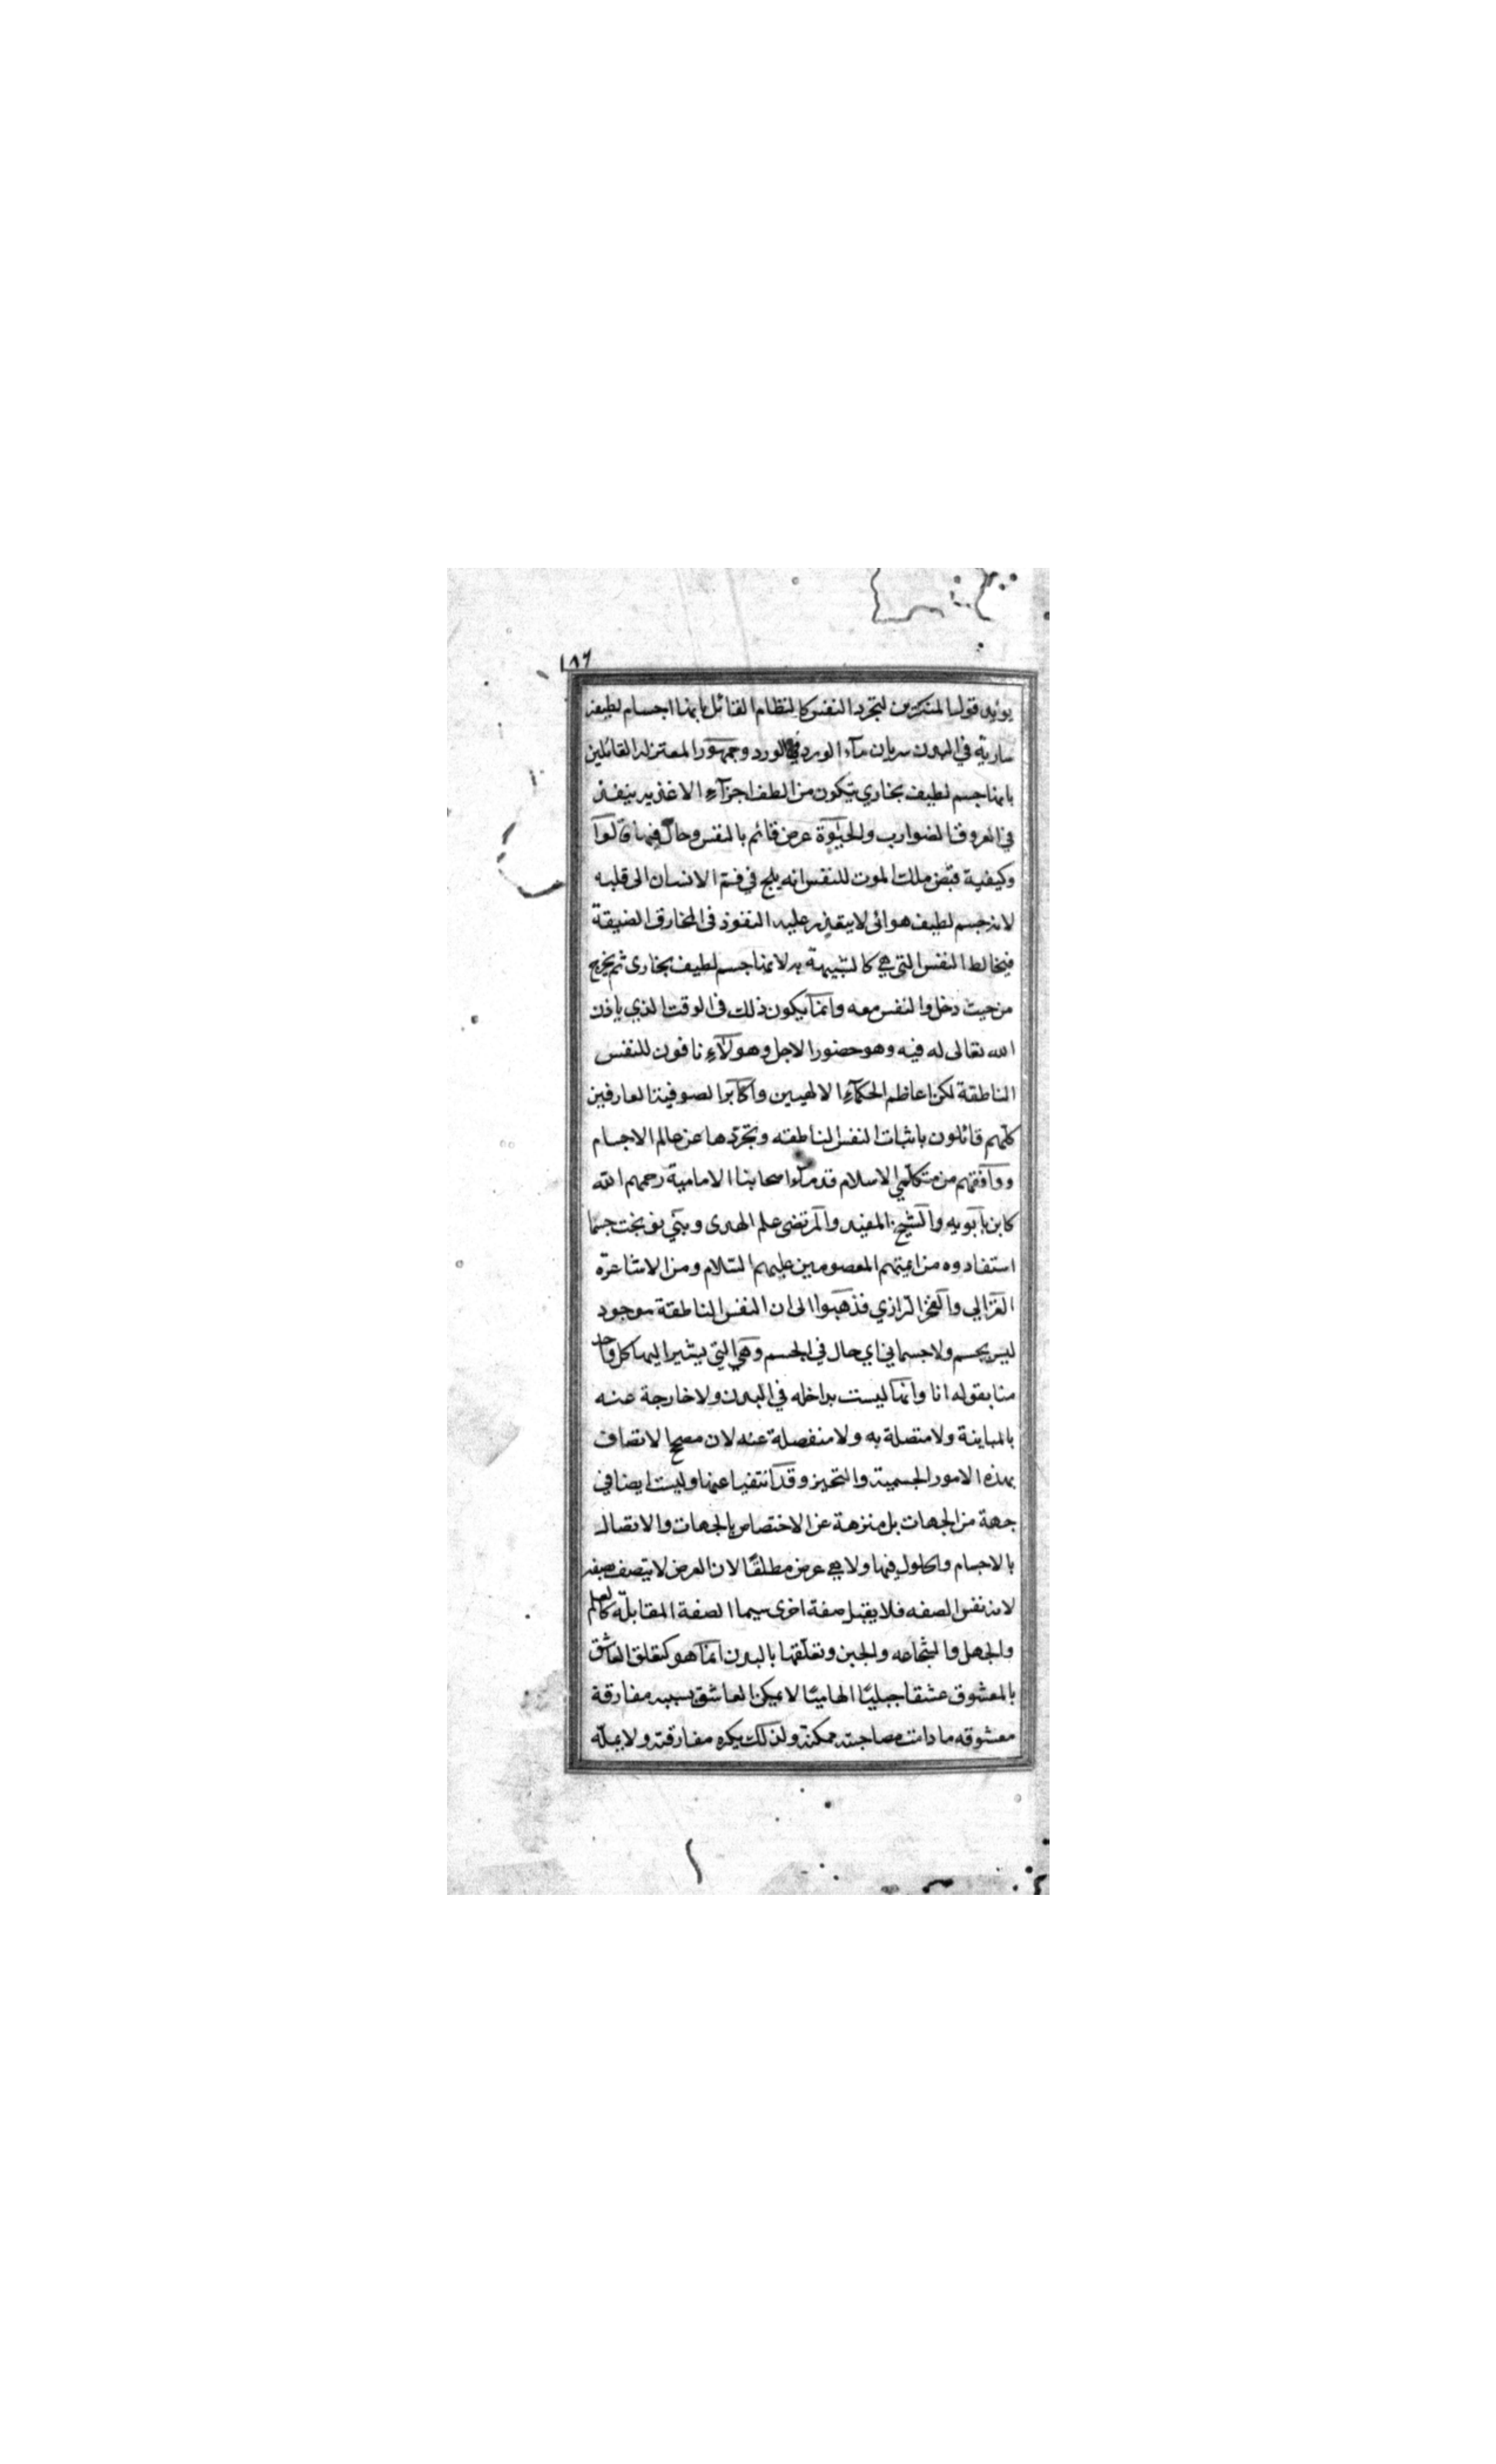 ١٨٦
يؤيد قول المنكرين لتجرد النفس كالنظام القائل بانها اجسام لطيفة
سارية في البدن سريان ماء الورد في الورد وجمهور المعتزله القائلين
بانها جسم لطيف بخاري يتكون من الطف اجزآء الاغذيه ينفذ
في العروق الضوارب والحيٰوة عرض قائم بالنفس وحالّ فيها قالوا
وكيفية قبض ملك الموت للنفس انه يلج في فم الانسان الى قلبه
لانه جسم لطيف هوائى لا يتعذر عليه النفوذ فى المخارق الضيقة
فيخالط النفس التى هي كالشبيهة به لانها جسم لطيف بخارى ثم يخرج
من حيث دخل والنفس معه وانما يكون ذلك فى الوقت الذي ياذن
الله تعالى له فيه وهو حضور الاجل وهولآء نافون للنفس
الناطقة لكن اعاظم الحكمآء الالهيين واكابر الصوفية العارفين
كلهم قائلون باثبات النفس الناطقه وتجردها عن عالم الاجسام
ووافقهم من متكلمي الاسلام قدماء اصحابنا الامامية رحمهم الله
كابن بابويه والشيخ المفيد والمرتضى علم الهدى وبني نوبخت حسبما
استفادوه من ائمتهم المعصومين عليهم السلام ومن الاشاعرة
الغزالي والفخر الرازي فذهبوا الى ان النفس الناطقة موجود
ليس بجسم ولا جسماني اي حال في الجسم وهي التي يشير اليها كل واحد
منا بقوله انا وانها ليست بداخله في البدن ولا خارجة عنه
بالمباينة ولا متصلة به ولا منفصلة عنه لان مصحح الاتصاف
بهذه الامور الجسمية والتحيز وقد انتفيا عنها وليست ايضا في
جهة من الجهات بل منزهة عن الاختصاص بالجهات والاتصال
بالاجسام والحلول فيها ولا هي عرض مطلقًا لان العرض لا يتصف بصفة
لانه نفس الصفه فلا يقبل صفة اخرى سيما الصفة المقابلة كالعلم
والجهل والشجاعه والجبن وتعلقها بالبدن انما هو كتعلق العاشق
بالمعشوق عشقا جبليًا الهاميًا لا يمكن العاشق بسببه مفارقة
معشوقه ما دامت مصاحبته ممكنة ولذلك يكره مفارقته ولا يملّه